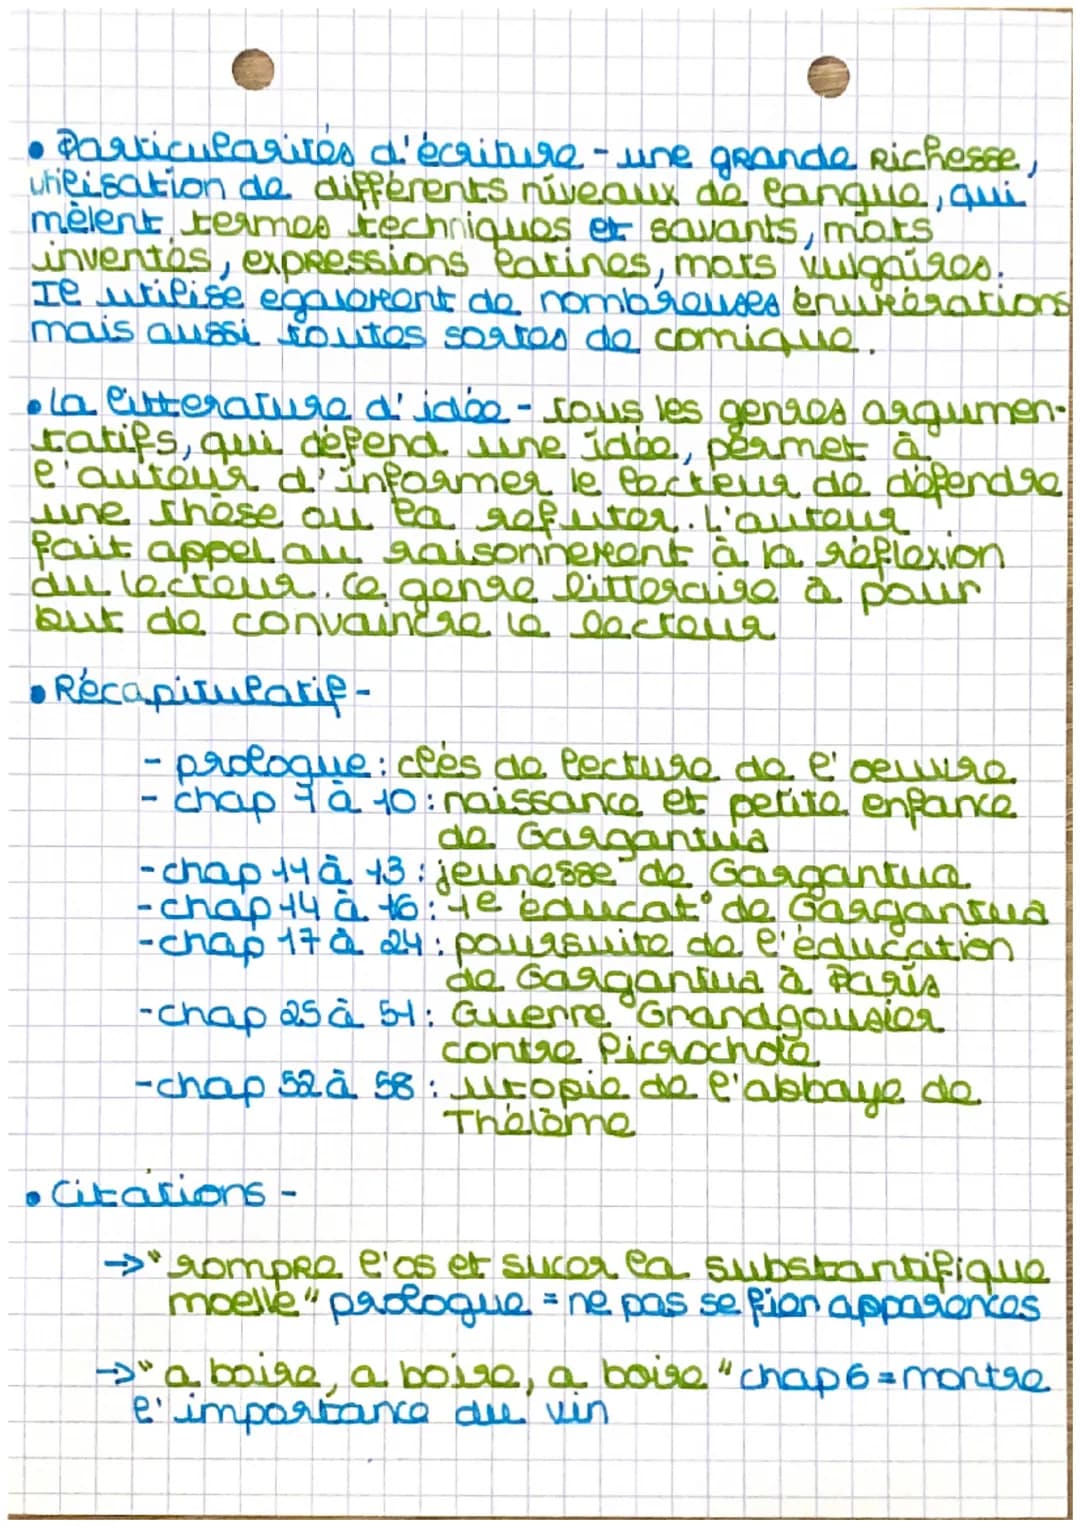 • Particularités d'écriture - une grande Richesse,
utilisation de différents niveaux de langue, qui
mèlent termes techniques et savants, mots
inventés, expressions latines, mots vulgaires.
Il utilise egalement de nombreuses énumérations
mais aussi toutes sortes de comique.
• La litterature d'idée - tous les genres argumen-
tatifs, qui défend une idée, permet à
l'auteur d'informer le lecteur de défendre
une thèse ou la refuter. L'auteur
fait appel au raisonnement à la réflexion
du lecteur. Ce genre litteraire à pour
but de convaincre le lecteur
• Récapitulatif -
- prologue : clés de lecture de l'oeuvre
- chap 1 à 10 : naissance et petite enfance
de Gargantua
- chap 11 à 13 : jeunesse de Gargantua
- chap 14 à 16 : 1e éducat° de Gargantua
- chap 17 à 24 : poursuite de l'éducation
de Gargantua à Paris
- chap 25 à 51 : Guerre Grandgousier
contre Picrochole
- chap 52 à 58 : utopie de l'abbaye de
Thélème
• Citations -
→ "rompre l'os et sucer la substantifique
moelle" prologue = ne pas se fier apparences
→ "a boire, a boire, a boire" chap 6 = montre
l'importance du vin